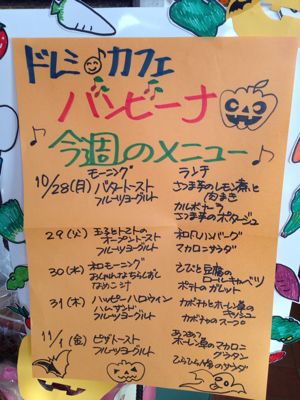 ドレミ♪カフェ
バンビーナ
今週のメニュー
モーニング
ランチ
10/28(月)
バタートースト
フルーツヨーグルト
さつま芋のレモン煮と
おまき
カルボナーラ
さつま芋のポタージュ
29(火)
玉子とトマトの
オープントースト
フルーツヨーグルト
和風ハンバーグ
マカロニサラダ
30(水)
和モーニング
なめこ汁
えびと豆腐の
ロールキャベツ
ポテトのガレット
31(木)
ハッピーハロウィン
ハムサンド
フルーツヨーグルト
カボチャとホーレン草の
キッシュ
カボチャのスープ
11/1(金)
ピザトースト
フルーツヨーグルト
あつあつ
ホーレン草のマカロニ
グラタン
サラダ